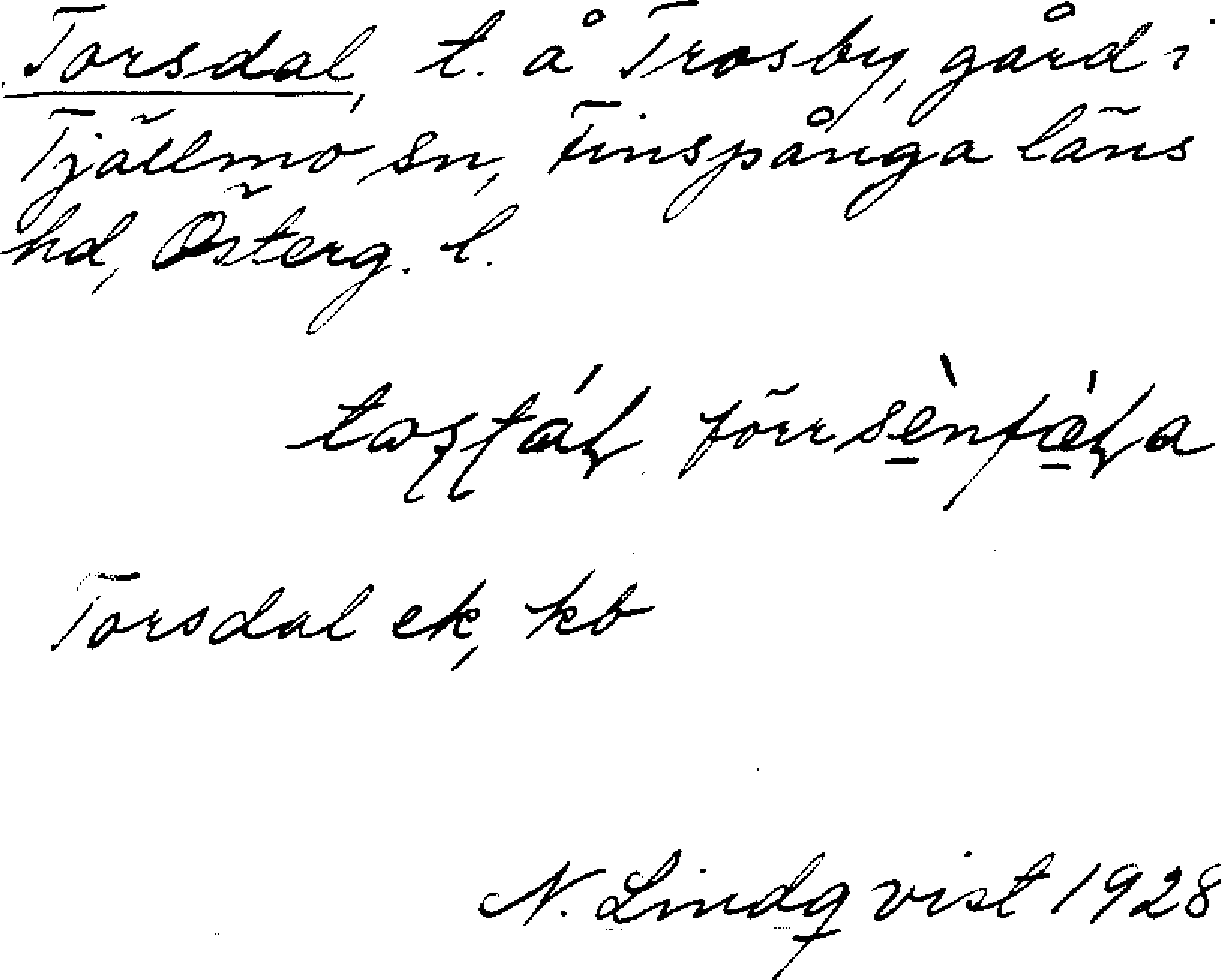 Torsdal, t. å Trosby, gård i
Tjällmo sn, Finspånga läns
hd, Österg. l.
förr
Torsdal ek, kb
N. Lindqvist 1928